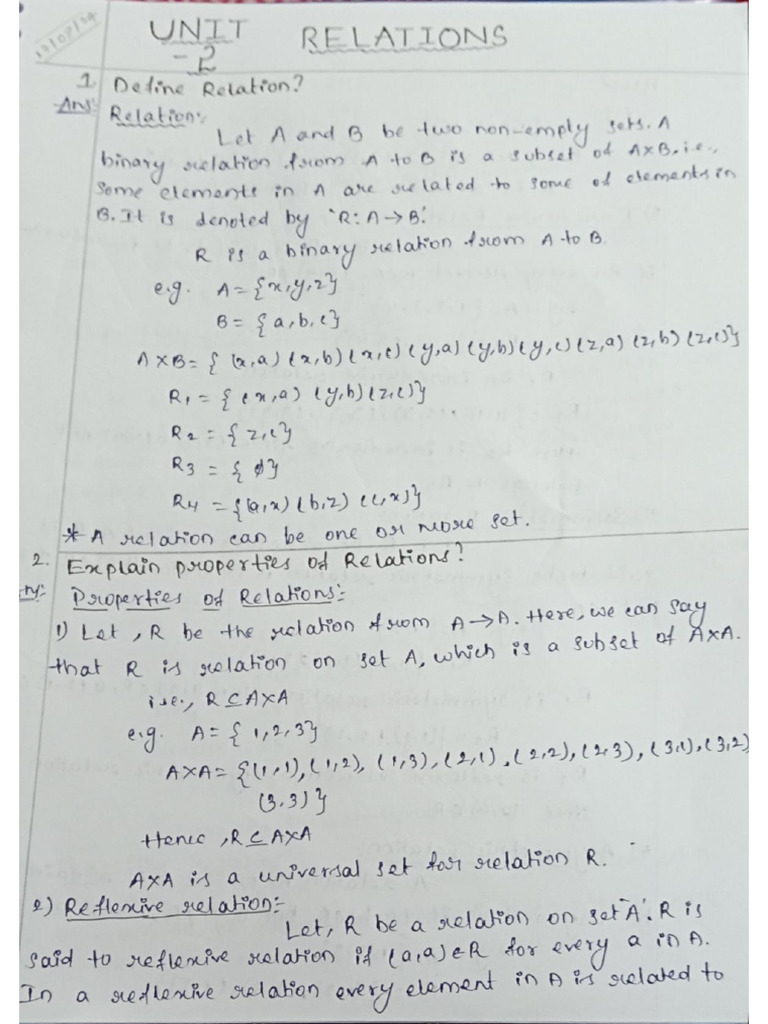 13/08/14
UNIT RELATIONS
-2
1. Define Relation?
Ans: Relation:
Let A and B be two non-emply sets. A
binary relation from A to B is a subset of A×B. i.e.,
Some elements in A are related to some of elements in
B. It is denoted by 'R: A→B.'
R is a binary relation from A to B.
e.g. A = {x,y,z}
B = {a,b,c}
A×B = { (x,a) (x,b) (x,c) (y,a) (y,b) (y,c) (z,a) (z,b) (z,c)}
R₁ = { (x,a) (y,b) (z,c)}
R₂ = { z,c}
R₃ = { ϕ}
R₄ = {(a,x) (b,z) (c,x)}
* A relation can be one or more set.
2. Explain properties of Relations?
Ans: Properties of Relations:-
1) Let, R be the relation from A→A. Here, we can say
that R is relation on set A, which is a subset of A×A.
i.e., R⊆A×A
e.g. A = { 1,2,3}
A×A = {(1,1),(1,2),(1,3),(2,1),(2,2),(2,3),(3,1),(3,2)
(3,3)}
Henc ,R⊆A×A
A×A is a universal set for relation R.
2) Reflexive relation:-
Let, R be a relation on set 'A'. R is
said to reflexive relation if (a,a)∈R for every a in A.
In a reflexive relation every element in A is related to